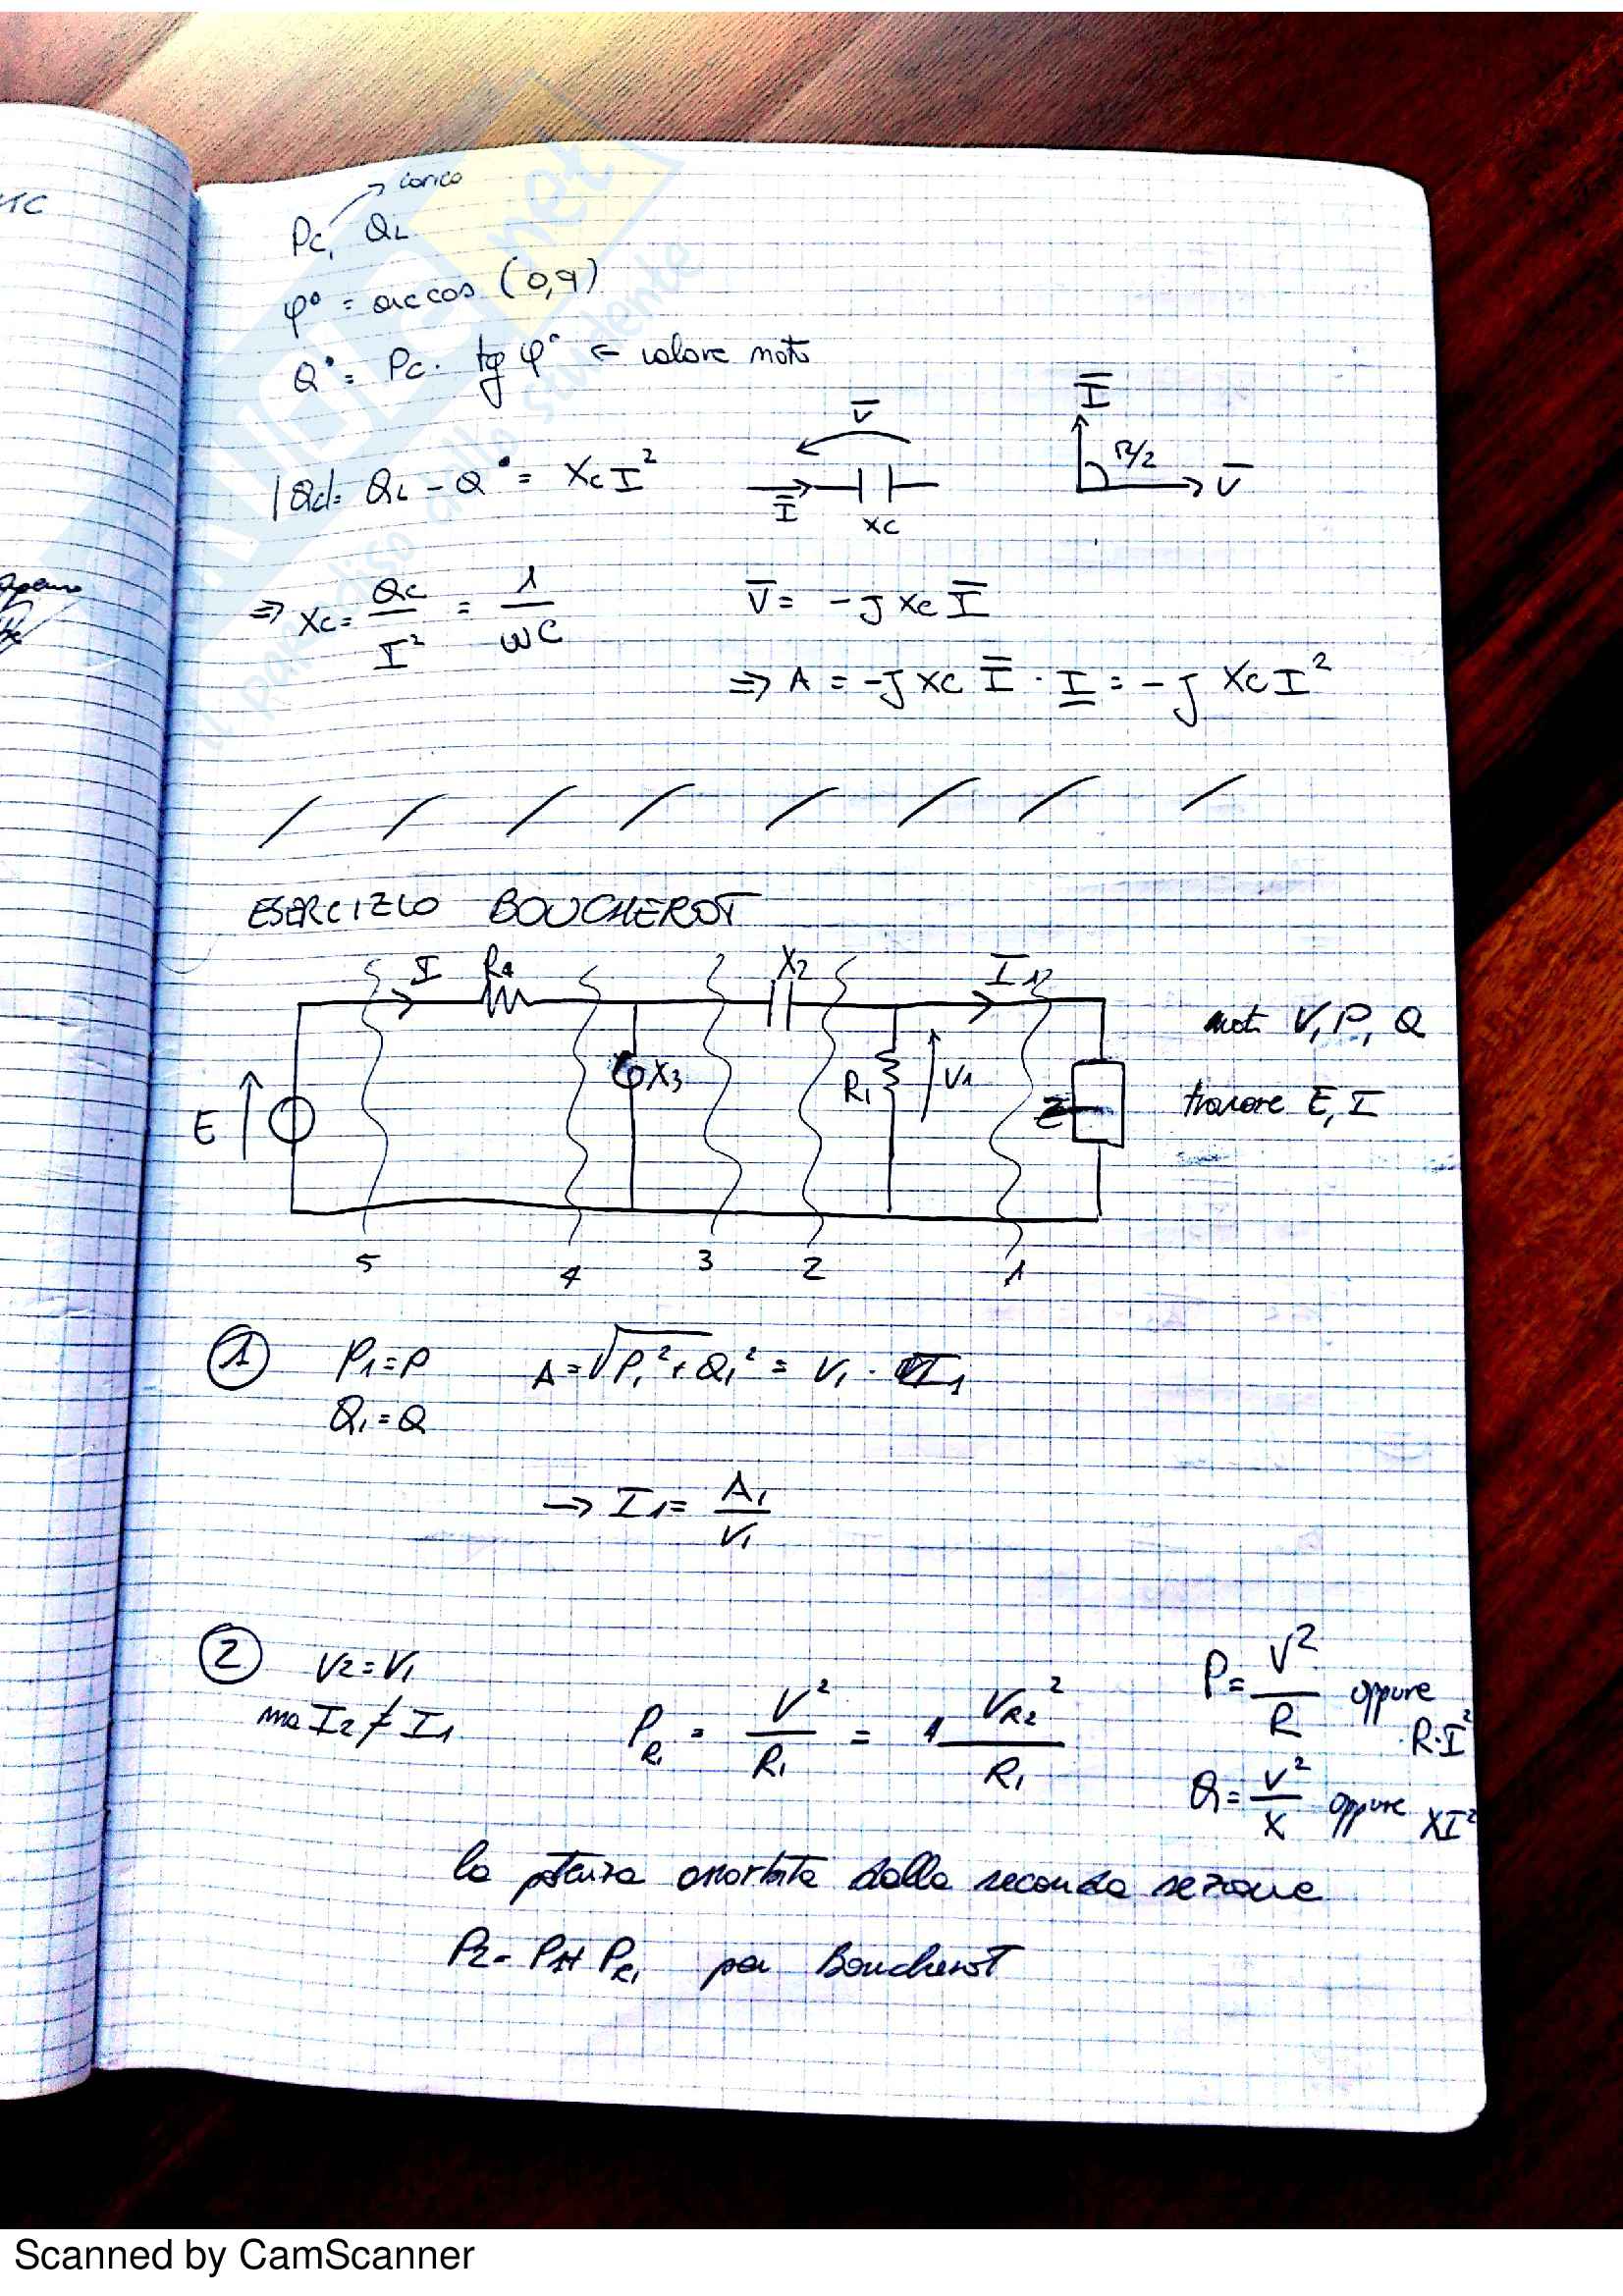 TC
→ carico
Pc, QL
φ° = arccos (0,9)
Q° = Pc · tg φ° ← valore noto
|Qc| = QL - Q° = Xc I²
V̅
I̅
Xc
I̅
π/2
V̅
⇒ Xc = Qc / I² = 1 / ωC
V̅ = -J Xc I̅
⇒ A = -J Xc I̅ · I̲ = -J Xc I²
ESERCIZIO BOUCHEROT
I
X2
I1
E
X3
R1
V1
Z
noti V, P, Q
trovare E, I
5
4
3
2
1
① P1 = P A = √P1² + Q1² = V1 · I1
Q1 = Q
→ I1 = A1 / V1
② V2 = V1
ma I2 ≠ I1
P_R1 = V² / R1 = V_R2² / R1
P = V² / R oppure R·I²
Q = V² / X oppure XI²
la potenza assorbita dalla seconda sezione
P2 = P1 + P_R1 per Boucherot
Scanned by CamScanner